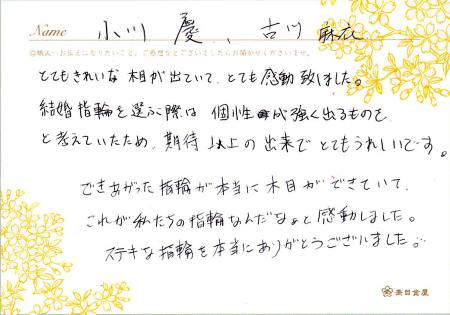 Name 小川 慶、古川 麻衣
◎職人へお伝えになりたいこと、ご感想などございましたらお聞かせくださいませ。
とてもきれいな木目が出ていて、とても感動致しました。
結婚指輪を選ぶ際は 個性が強く出るものを
と考えていたため、期待以上の出来でとてもうれしいです。
できあがった指輪が本当に木目ができていて、
これが私たちの指輪なんだなぁと感動しました。
ステキな指輪を本当にありがとうございました。
杢目金屋